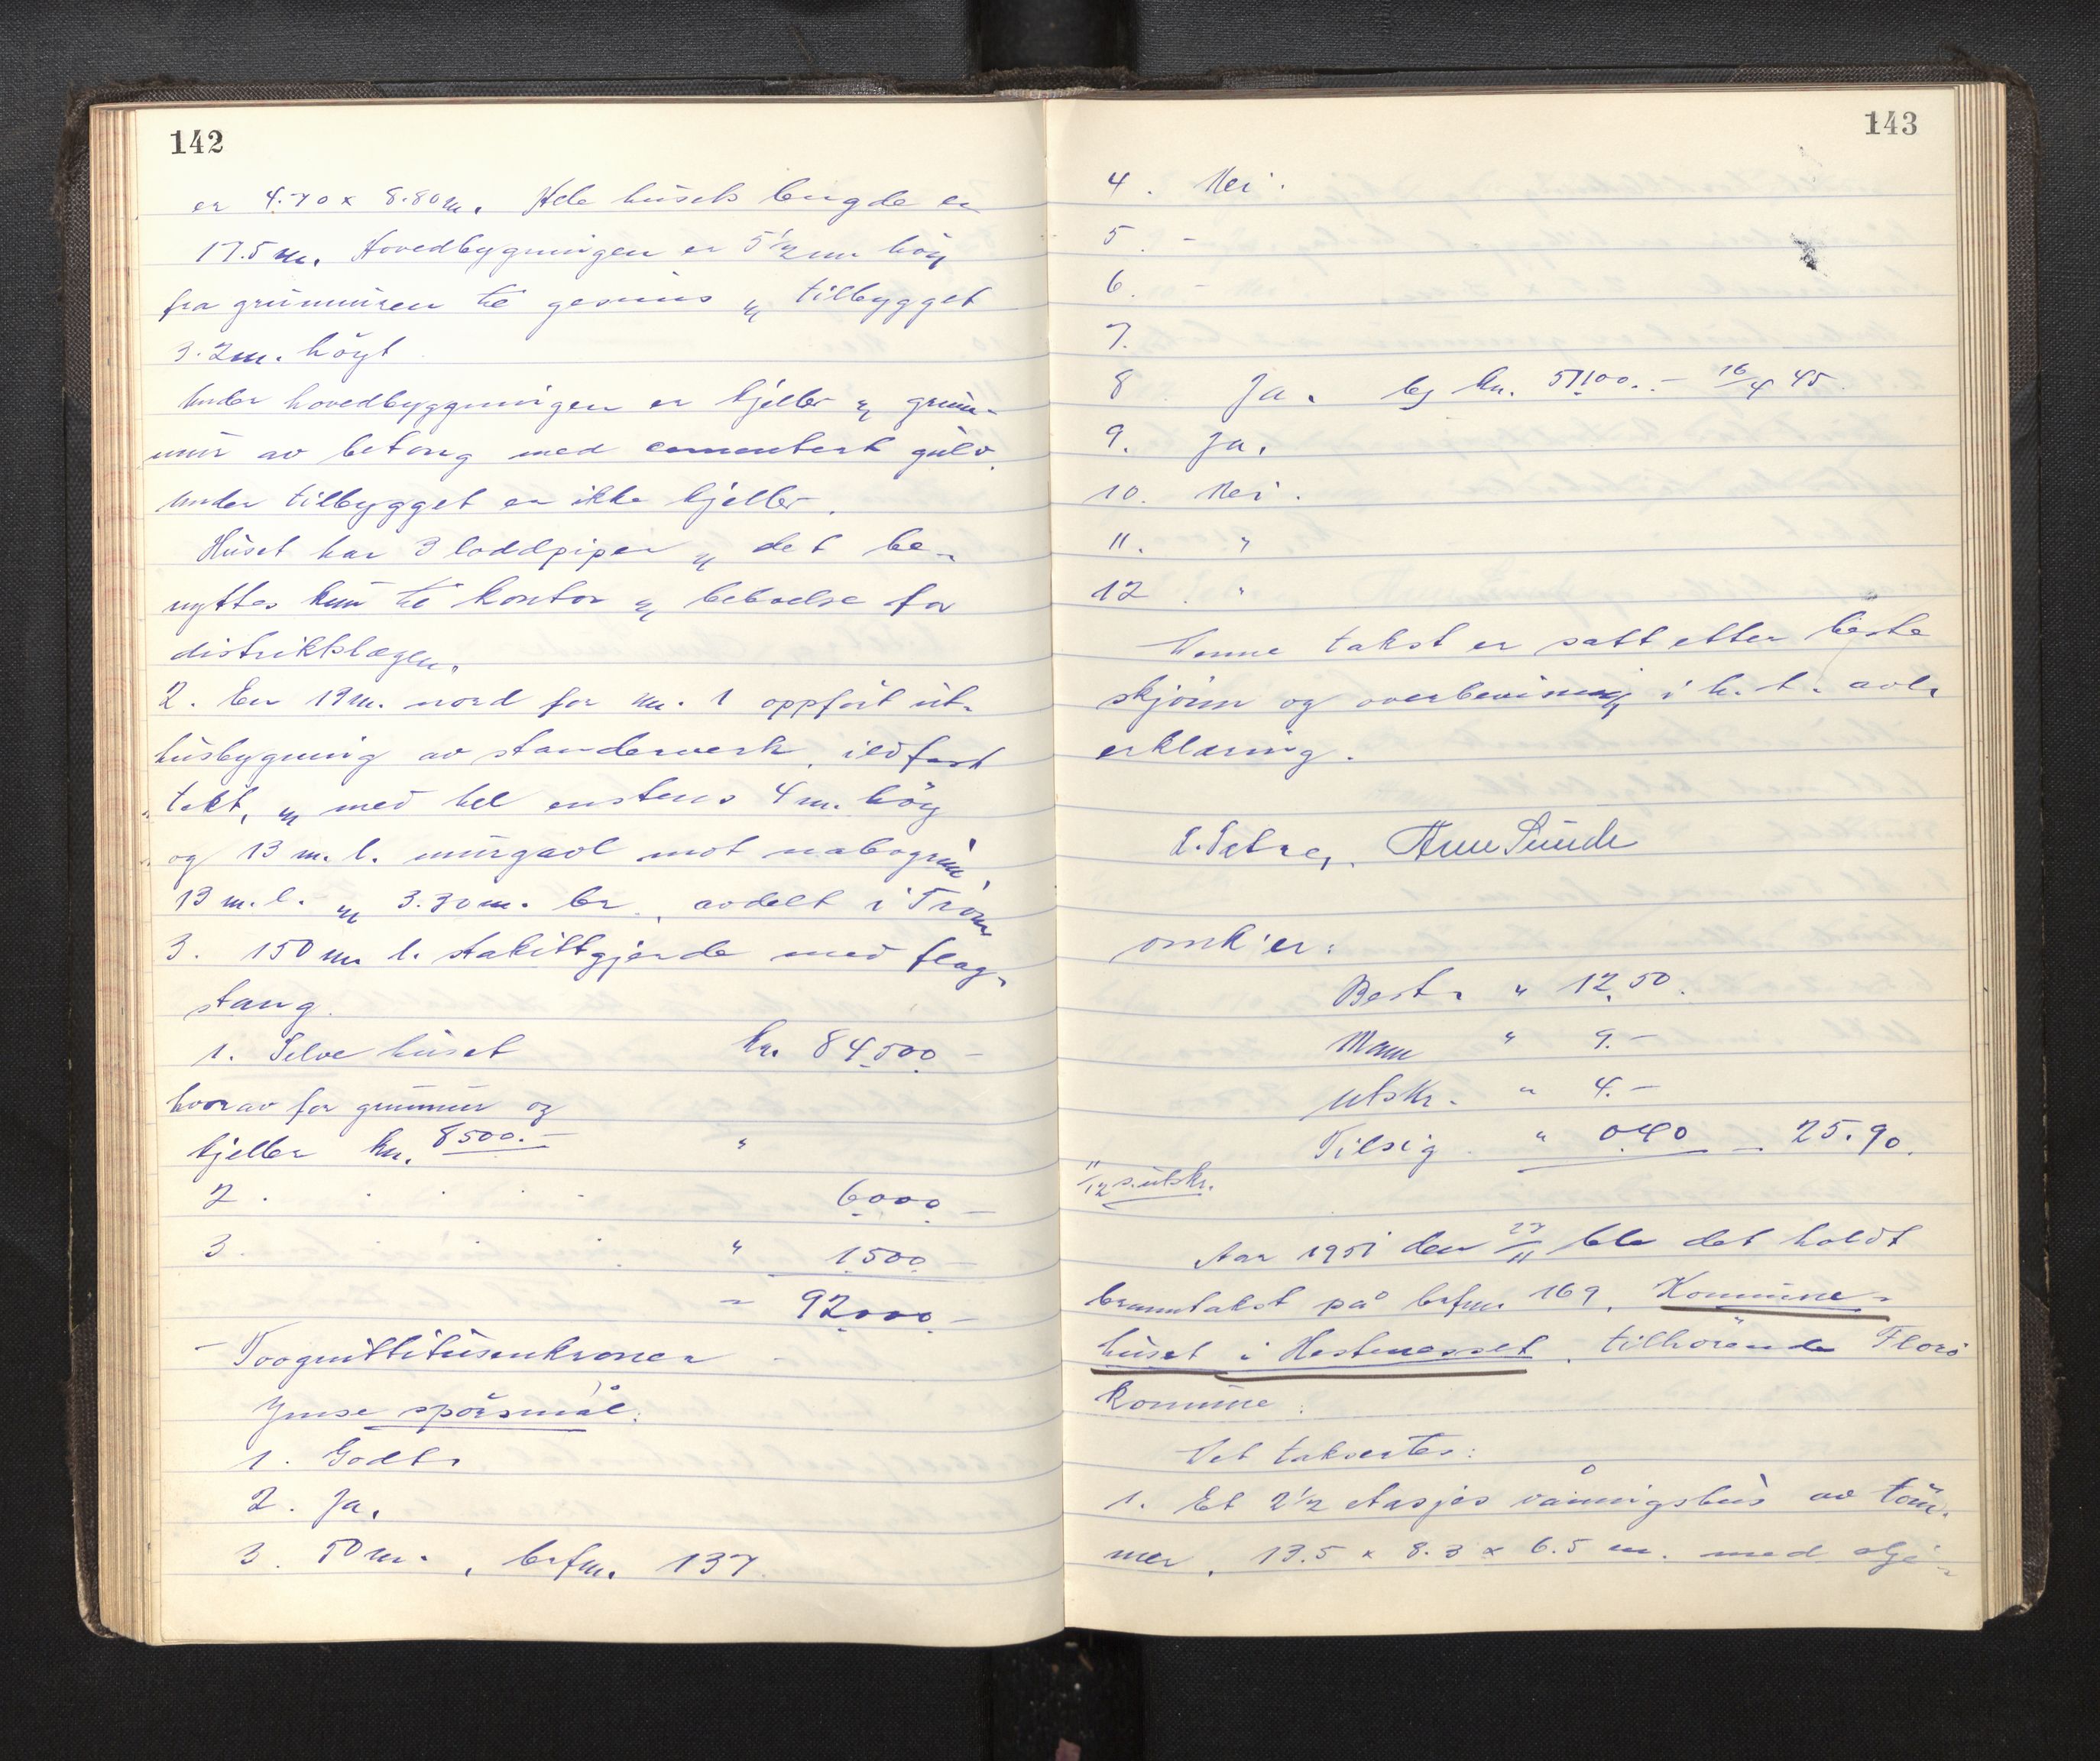 142
er 4.70 x 8.80 m. Hele husets lengde er
17.5 m. Hovedbygningen er 5½ m høg
fra grunmuren til gesims og tilbygget
3.2 m. høgt
Under hovedbyggningen er kjeller og grun-
mur av betong med cementert gulv.
Under tilbygget er ikke kjeller.
Huset har 3 loddpiper og det be-
nyttes kun til kontor og beboelse for
distriktslægen.
2. En 19 m. nord for nr. 1 oppført ut-
husbygning av standerverk, ildfast
tekt, og med hel enstens 4 m. høg
og 13 m. l. murgavl mot nabogrun,
13 m. l. og 3.30 m. br., avdelt i 3 rom
3. 150 m l. stakittgjerde med flag-
stang.
1. Selve huset kr. 84500 -
hvorav for grunmur og
kjeller kr. 8500.- "
2 . . . . 6000 -
3. . . . " 1500 -
" 92000 -
- Toognittitusenkroner -
Ymse spørsmål:
1. Godt.
2. Ja.
3. 50 m. , brfnr. 137.
143
4. Nei.
5. -
6. -
7.
8 Ja. bg kr. 51100.- 16/4 45.
9. Ja.
10. Nei.
11. "
12. "
Denne takst er satt etter beste
skjønn og overbevisning i h. t. avl.
erklæring.
Arne Sunde
omk'er:
Best. " 12.50.
Mann " 9.-
Utskr. " 4.-
Tilsig " 0.40 - 25.90.
11/12 s. utskr.
Aar 1951 den 27/11 ble det holdt
branntakst på brfnr 169, Kommune-
huset i Hestenesset, tilhørende Florø
komune.
Det taksertes:
1. Et 2½ etasjes våningshus av tøm-
mer, 13.5 x 8.3 x 6.5 m. med olje-